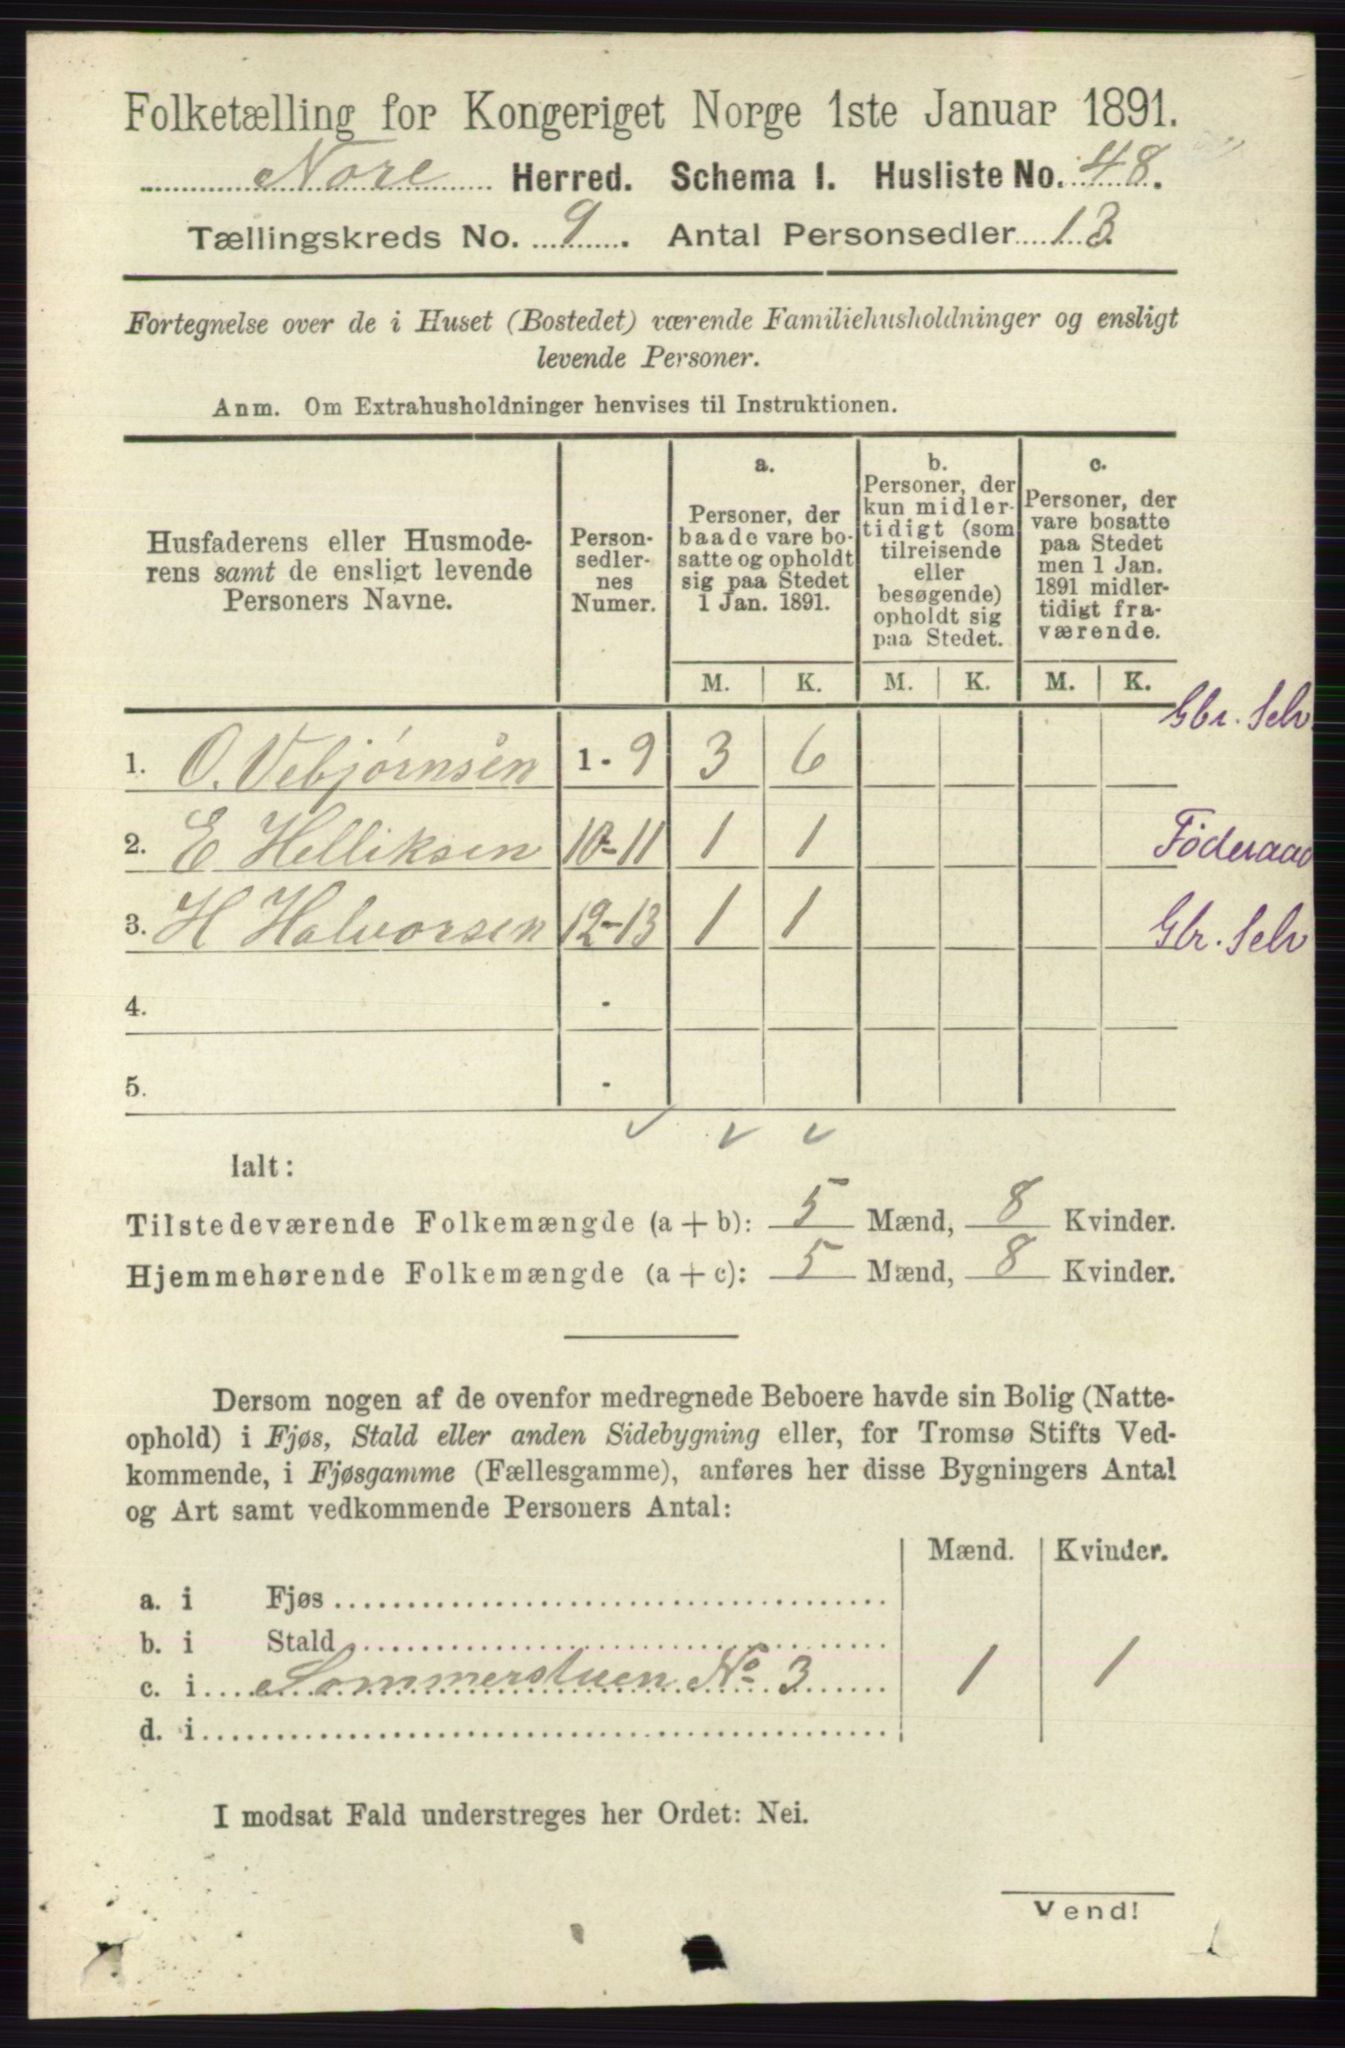 Folketælling for Kongeriget Norge 1ste Januar 1891.
Nore Herred. Schema I. Husliste No. 48.
Tællingskreds No. 9. Antal Personsedler 13
Fortegnelse over de i Huset (Bostedet) værende Familiehusholdninger og ensligt
levende Personer.
Anm. Om Extrahusholdninger henvises til Instruktionen.
Husfaderens eller Husmode-
rens samt de ensligt levende
Personers Navne.
Person-
sedler-
nes
Numer.
a.
Personer, der
baade vare bo-
satte og opholdt
sig paa Stedet
1 Jan. 1891.
b.
Personer, der
kun midler-
tidigt (som
tilreisende
eller
besøgende)
opholdt sig
paa Stedet.
c.
Personer, der
vare bosatte
paa Stedet
men 1 Jan.
1891 midler-
tidigt fra-
værende.
M. K. M. K. M. K.
Gbr. Selv
1. O. Vebjørnsen 1 - 9 3 6
2. E Helliksen 10-11 1 1 Föderaad
3. H Halvorsen 12-13 1 1 Gbr. Selv
4. -
5. -
Ialt:
Tilstedeværende Folkemængde (a + b): 5 Mænd, 8 Kvinder.
Hjemmehørende Folkemængde (a + c): 5 Mænd, 8 Kvinder.
Dersom nogen af de ovenfor medregnede Beboere havde sin Bolig (Natte-
ophold) i Fjøs, Stald eller anden Sidebygning eller, for Tromsø Stifts Ved-
kommende, i Fjøsgamme (Fællesgamme), anføres her disse Bygningers Antal
og Art samt vedkommende Personers Antal:
Mænd. Kvinder.
a. i Fjøs
b. i Stald
c. i Sommerstuen No 3 1 1
d. i
I modsat Fald understreges her Ordet: Nei.
Vend!